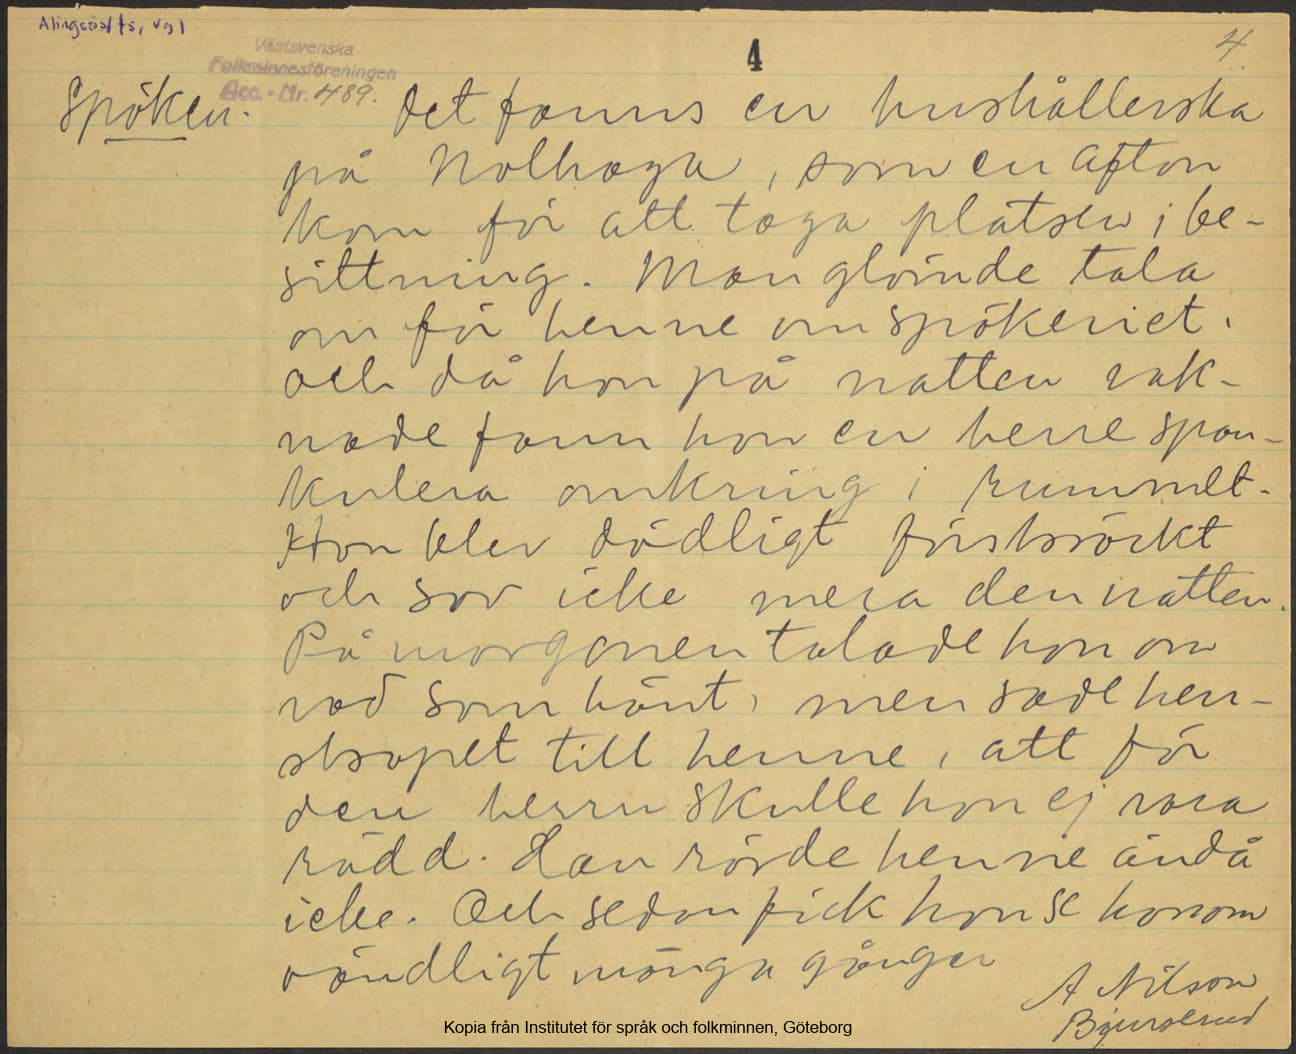 Alingsås ls, Vgl
Västsvenska
Folkminnesföreningen
Acc. - Nr. 489.
4
4
Spöken.
Det fanns en hushållerska
på Nolhaga, som en afton
kom för att taga platsen i be-
sittning. Man glömde tala
om för henne om spökeriet,
och då hon på natten vak-
nade fann hon en herre span-
kulera omkring i rummet.
Hon blev dödligt förskräckt
och sov icke mera den natten.
På morgonen talade hon om
vad som hänt, men sade her-
skapet till henne, att för
den herrn skulle hon ej vara
rädd. Han rörde henne ändå
icke. Och sedan fick hon se honom
oändligt många gånger
A Nilson
Kopia från Institutet för språk och folkminnen, Göteborg